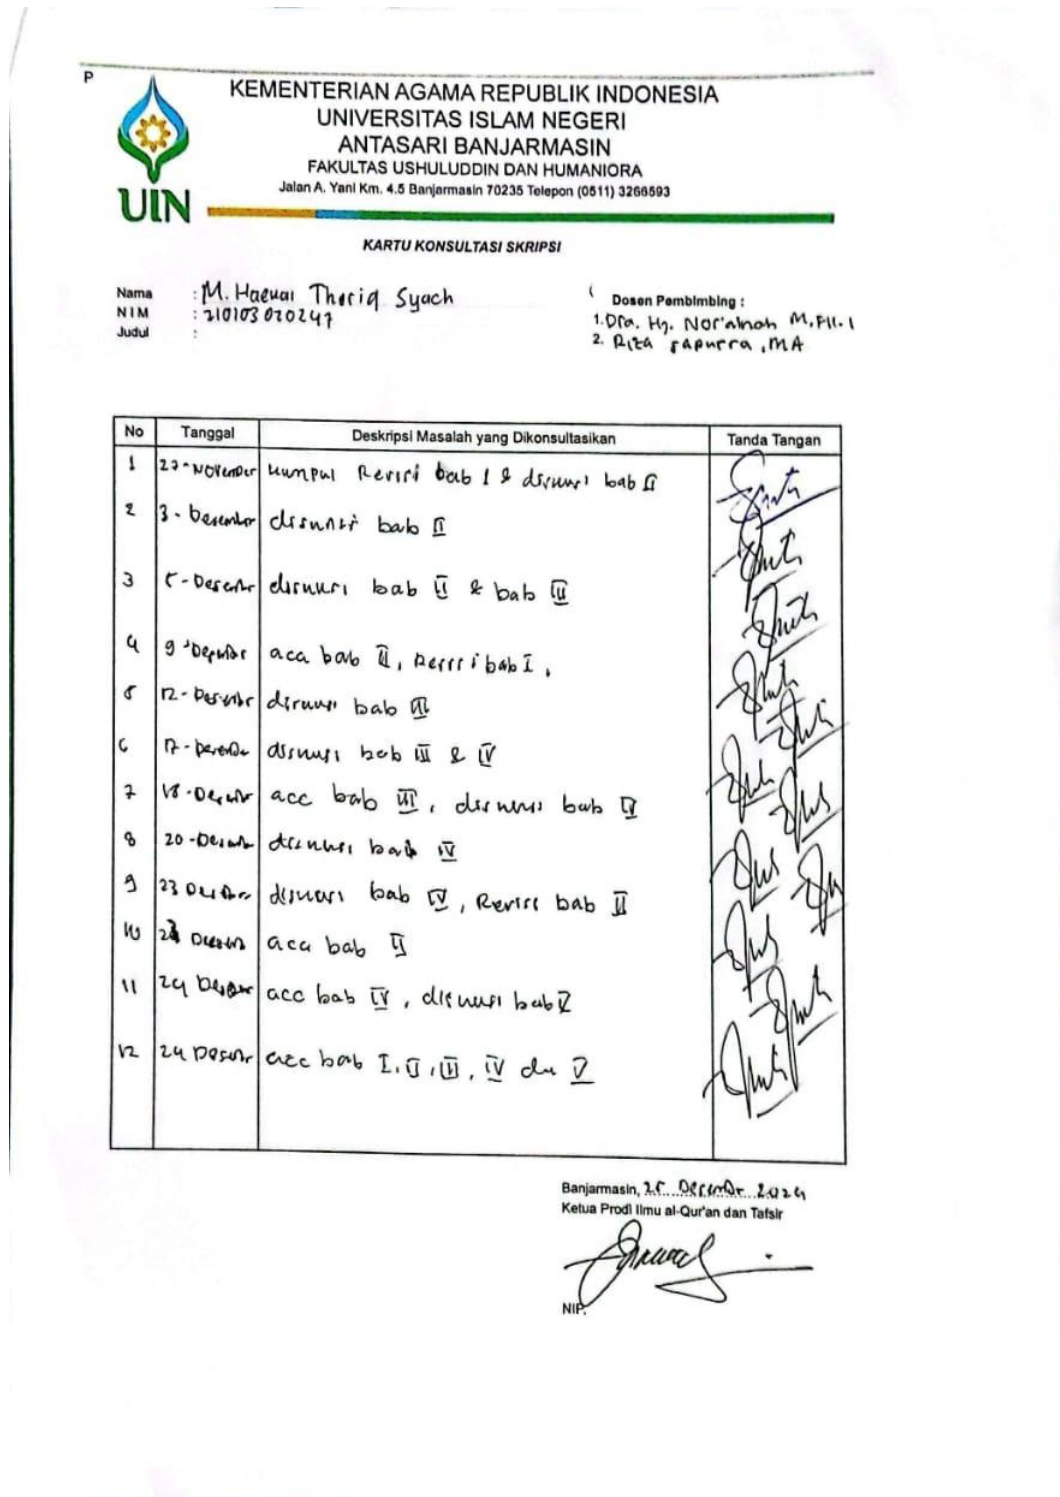 P
KEMENTERIAN AGAMA REPUBLIK INDONESIA
UNIVERSITAS ISLAM NEGERI
ANTASARI BANJARMASIN
FAKULTAS USHULUDDIN DAN HUMANIORA
Jalan A. Yani Km. 4.5 Banjarmasin 70235 Telepon (0511) 3266593
UIN
KARTU KONSULTASI SKRIPSI
Nama : M. Haekal Thoriq Syach
NIM : 210103020247
Judul :
Dosen Pembimbing :
1. Dra. Hj. Nor'ainah M.Fil.I
2. Riza Saputra, MA
No Tanggal Deskripsi Masalah yang Dikonsultasikan Tanda Tangan
1 27-November kumpul Revisi bab I & diskusi bab II
2 3-Desember diskusi bab II
3 5-Desember diskusi bab II & bab III
4 9 Desember acc bab II, Revisi bab I,
5 12-Desember diskusi bab III
6 17-Desember diskusi bab III & IV
7 18-Desember acc bab III, diskusi bab IV
8 20-Desember diskusi bab IV
9 23 Desember diskusi bab IV, Revisi bab II
10 Desember acc bab
11 24 Desember acc bab IV, diskusi bab V
12 24 Desember acc bab I, II, III, IV dan V
Banjarmasin, 25 Desember 2024
Ketua Prodi Ilmu al-Qur'an dan Tafsir
NIP.